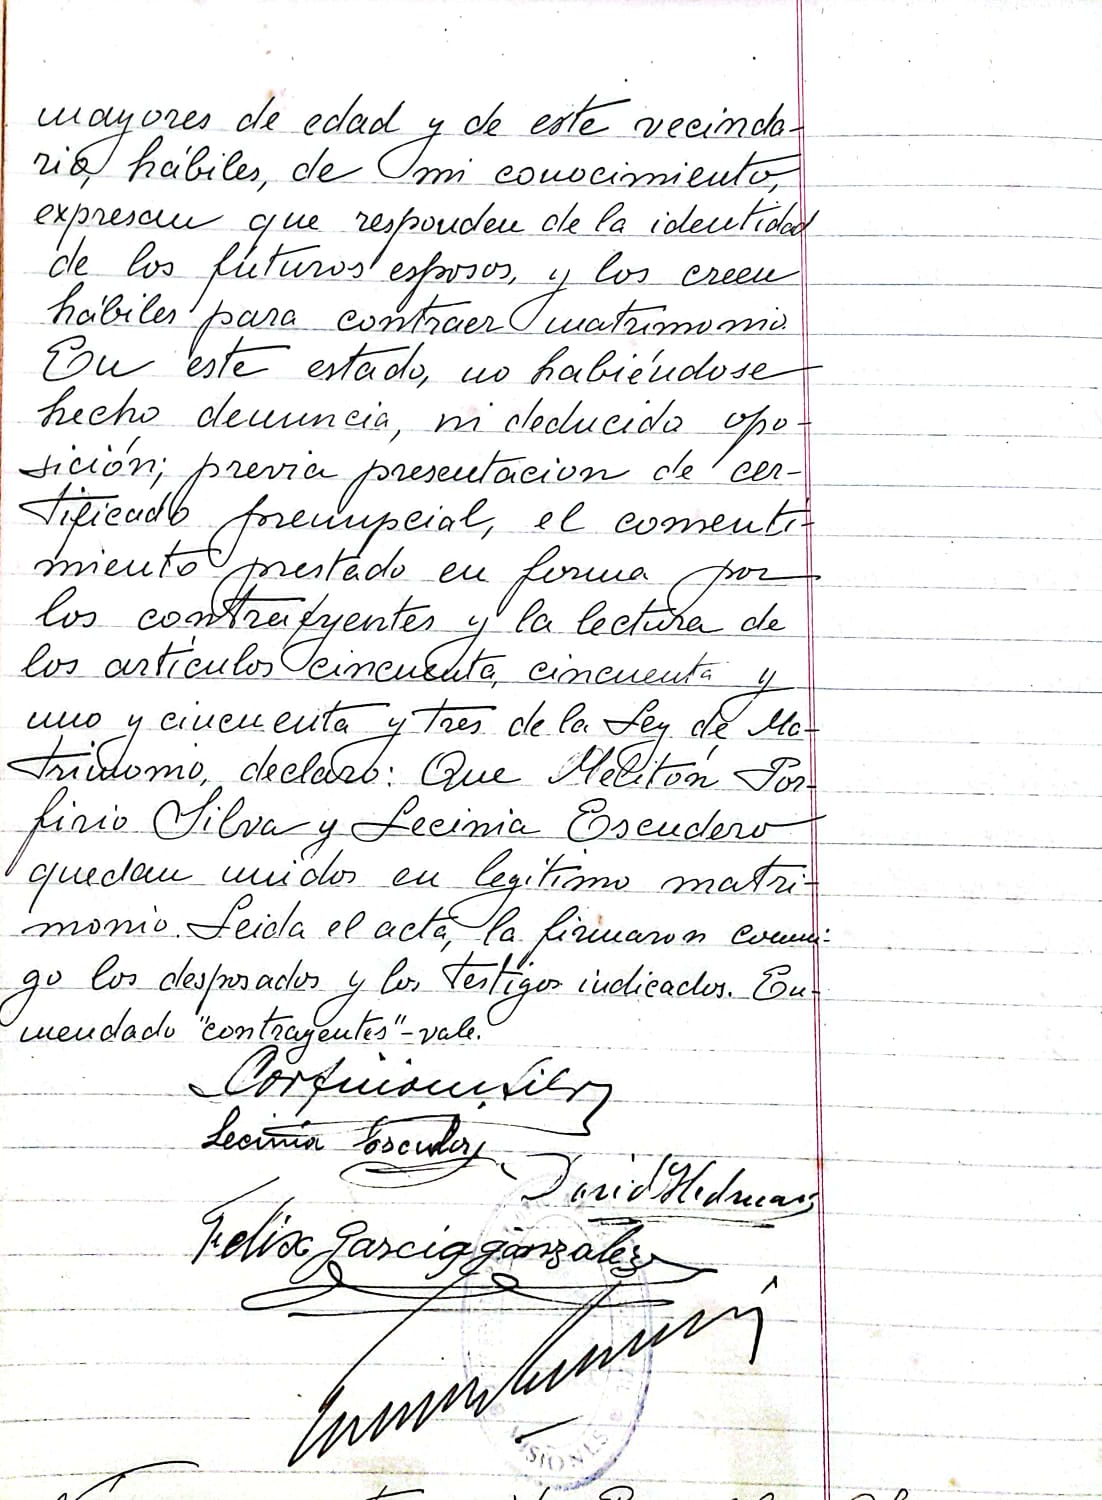 mayores de edad y de este vecinda-
rio, hábiles, de mi conocimiento,
expresan que responden de la identidad
de los futuros esposos, y los creen
hábiles para contraer matrimonio.
En este estado, no habiéndose
hecho denuncia, ni deducido opo-
sición; previa presentacion de cer-
tificado prenupcial, el consenti-
miento prestado en forma por
los contrayentes y la lectura de
los artículos cincuenta, cincuenta y
uno y cincuenta y tres de la Ley de Ma-
trimonio, declaro: Que Melitón Por-
firio Silva y Lecinia Escudero
quedan unidos en legítimo matri-
monio. Leida el acta, la firmaron conmi-
go los desposados y los testigos indicados. En-
mendado "contrayentes"-vale.
Silva
Lecinia Escudero
David
Felix Garcia gonzalez
MISIONES